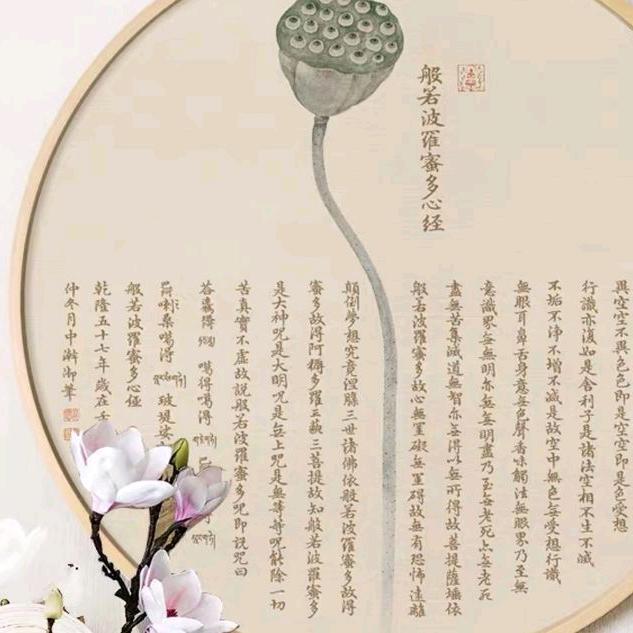 般若波羅蜜多心経
異空空不異色色即是空空即是色受想
行識亦復如是舍利子是諸法空相不生不滅
不垢不淨不增不減是故空中無色無受想行識
無眼耳鼻舌身意無色聲香味觸法無眼界乃至無
意識界無無明亦無無明盡乃至無老死亦無老死
盡無苦集滅道無智亦無得以無所得故菩提薩埵依
般若波羅蜜多故心無罣礙無罣碍故無有恐怖遠離
顛倒夢想究竟涅槃三世諸佛依般若波羅蜜多故得
蜜多故得阿耨多羅三藐三菩提故知般若波羅蜜多
是大神咒是大明咒是無上咒是無等等咒能除一切
苦真實不虛故說般若波羅蜜多咒即說咒曰
得 噶得噶得
喇桑噶得 玻堤娑
般若波羅蜜多心經
乾隆五十七年歲在壬
仲冬月中澣御筆